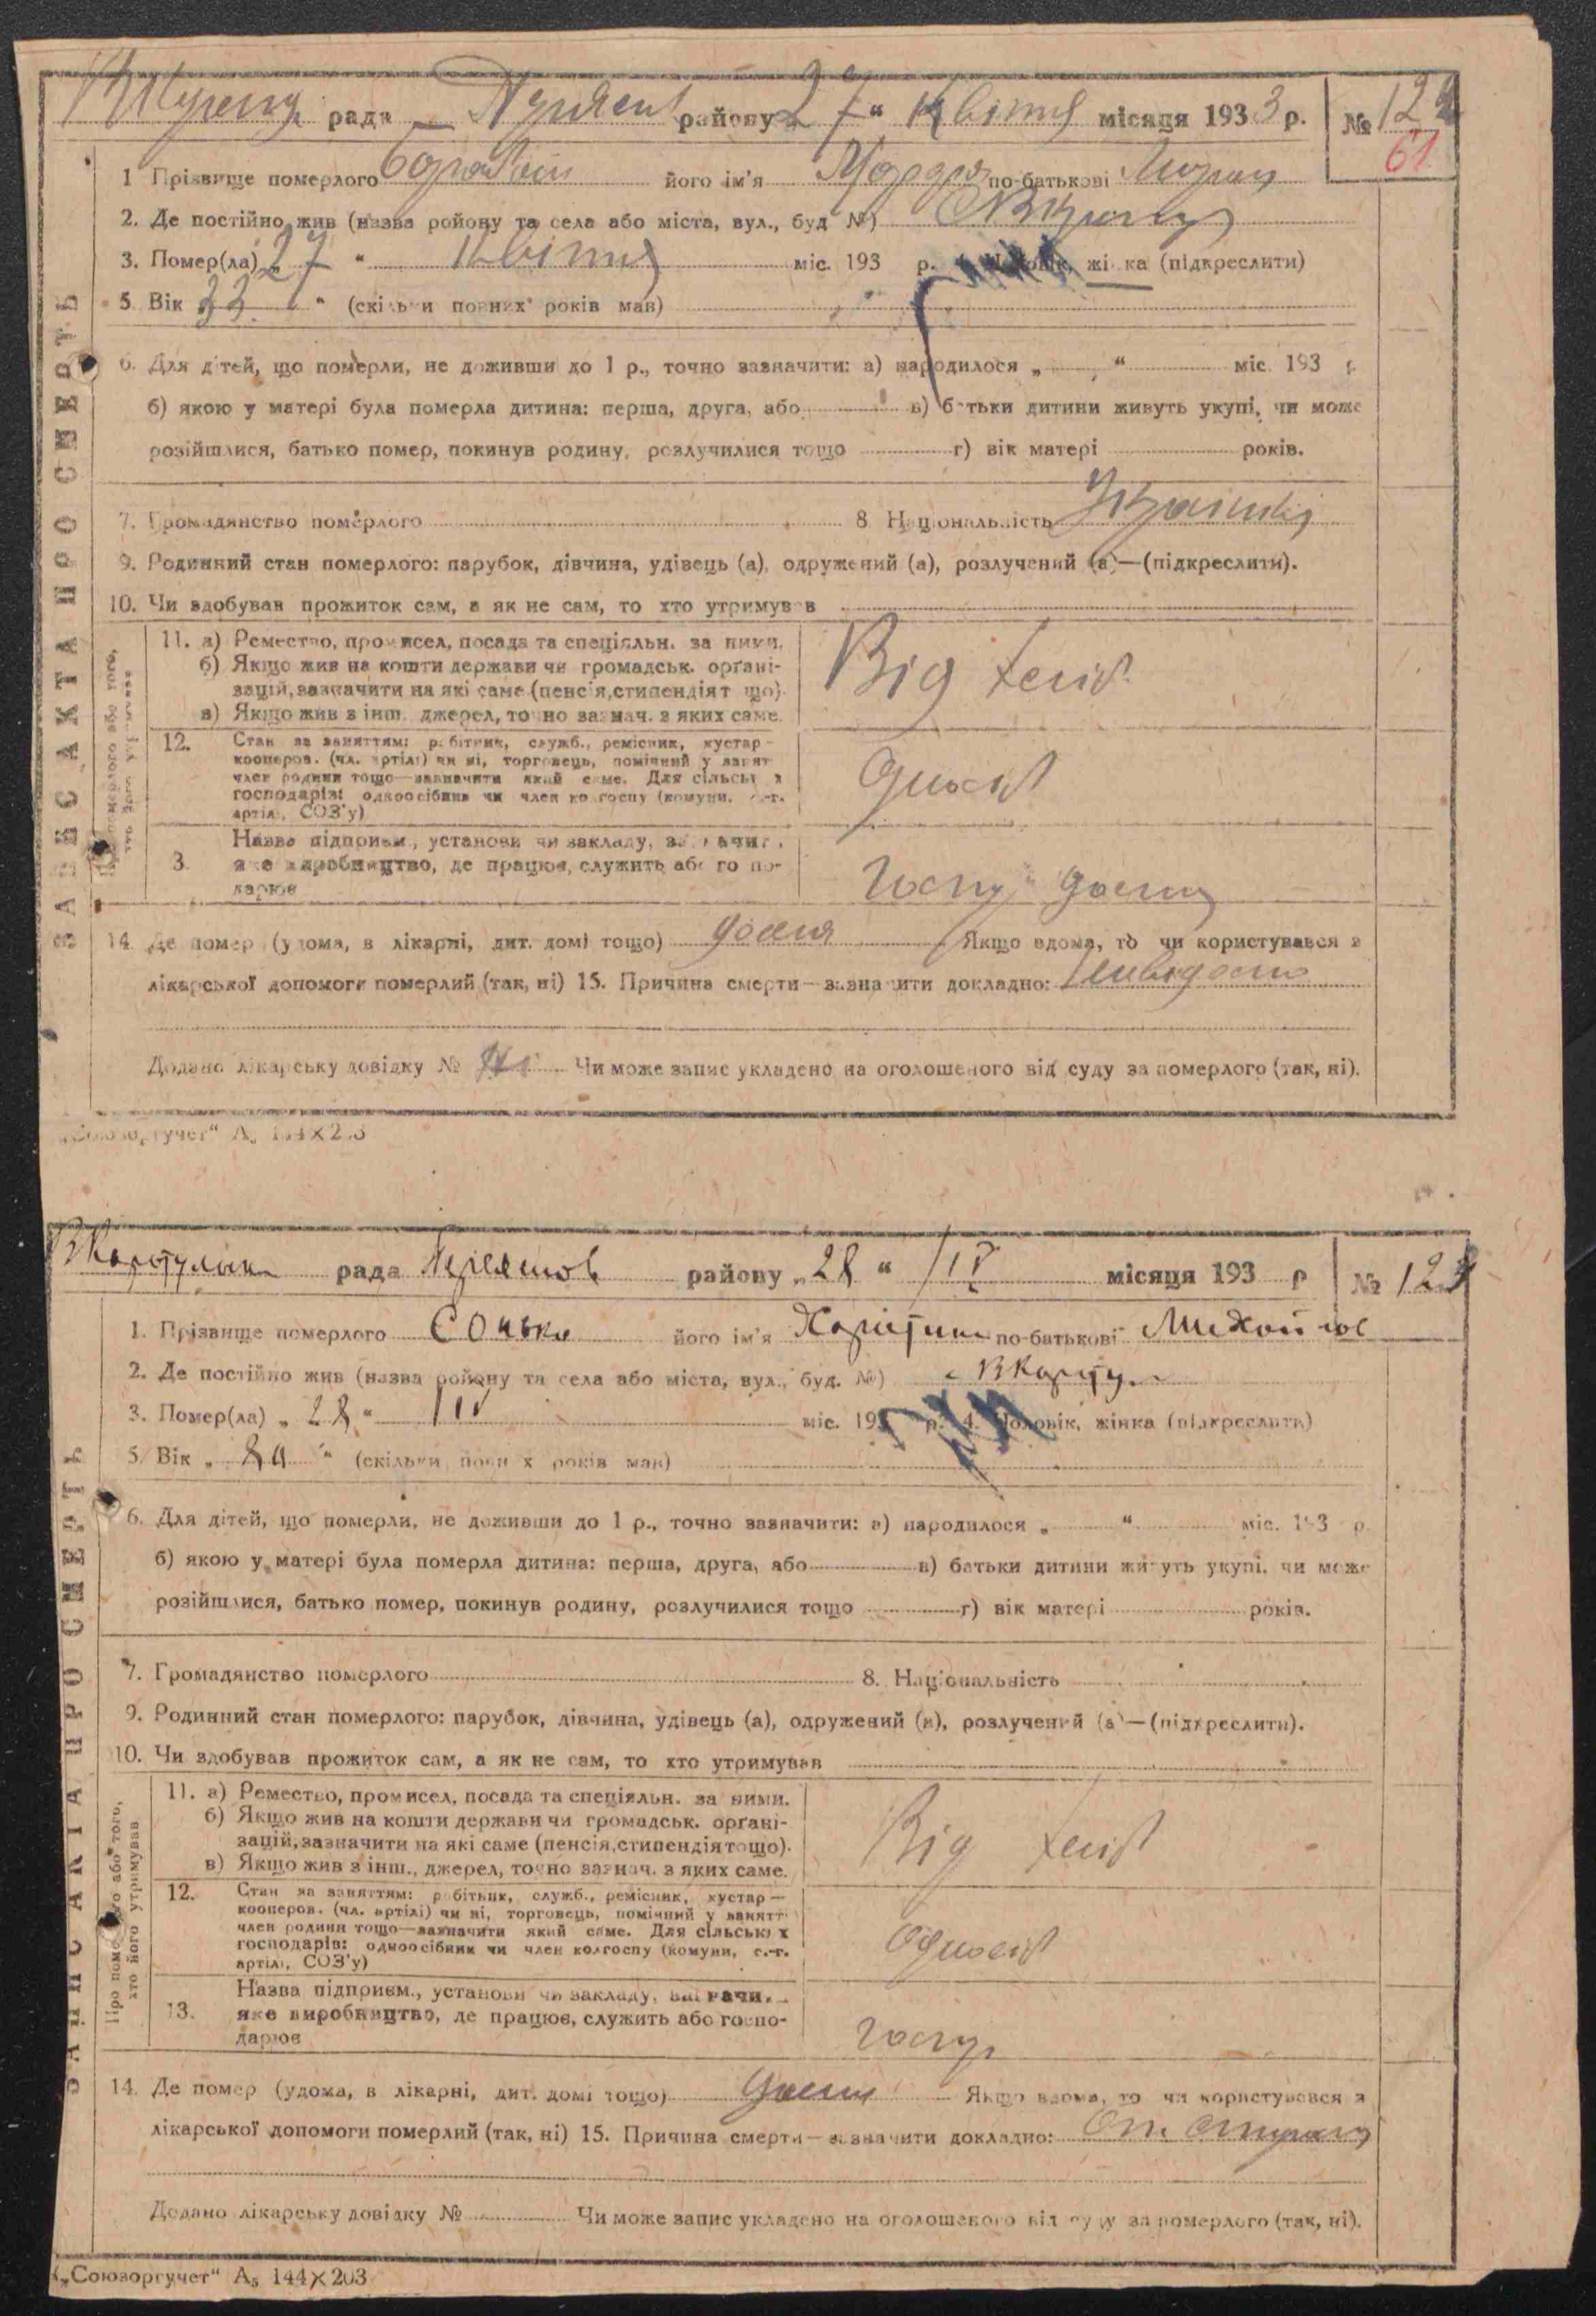 рада району 27 " Квітня місяця 1933 р. № 122
61
1 Прізвище померлого його ім'я по-батькові
2. Де постійно жив (назва ройону та села або міста, вул., буд №)
3. Помер(ла) „ 27 " Квітня міс. 193 р. жінка (підкреслити)
5 Вік 33 " (скільки повних років мав)
6. Для дітей, що померли, не доживши до 1 р., точно зазначити: а) народилося „ " міс. 193 р
б) якою у матері була померла дитина: перша, друга, або в) батьки дитини живуть укупі, чи може
розійшлися, батько помер, покинув родину, розлучилися тощо г) вік матері років.
7. Громадянство померлого 8 Національність
9. Родинний стан померлого: парубок, дівчина, удівець (а), одружений (а), розлучений (а)—(підкреслити).
10. Чи здобував прожиток сам, а як не сам, то хто утримував
ЗАПИС АКТА ПРО СМЕРТЬ
11. а) Ремество, промисел, посада та спеціяльн. за ними.
б) Якщо жив на кошти держави чи громадськ. орґані-
зацій, зазначити на які саме (пенсія, стипендія тощо).
в) Якщо жив з інш. джерел, точно зазнач. з яких саме.
Від
12. Стан за заняттям: робітник, служб., ремісник, кустар—
кооперов. (чл. артілі) чи ні, торговець, помічний у занят
член родини тощо—зазначити який саме. Для сільськ х
господарів: одноосібник чи член колгоспу (комуни, с.-г.
артілі, СОЗ'у)
3. Назва підприєм., установи чи закладу, зазначит.
яке виробництво, де працює, служить або го по-
дарює
14. Де помер (удома, в лікарні, дит. домі тощо) дома Якщо вдома, то чи користувався з
лікарської допомоги померлий (так, ні) 15. Причина смерти—зазначити докладно: Невідомо
Додано лікарську довідку № Чи може запис укладено на оголошеного від суду за померлого (так, ні).
„Союзоргучет“
рада району „ 28 " IV місяця 193 р № 123
1. Прізвище померлого його ім'я по-батькові
2. Де постійно жив (назва ройону та села або міста, вул., буд. №)
3. Помер(ла) „ 28 " IV міс. 193 р. 4. Чоловік, жінка (підкреслити)
5. Вік „ " (скільки повн х років мав)
6. Для дітей, що померли, не доживши до 1 р., точно зазначити: а) народилося „ " міс. 193 р.
б) якою у матері була померла дитина: перша, друга, або в) батьки дитини живуть укупі, чи може
розійшлися, батько помер, покинув родину, розлучилися тощо г) вік матері років.
7. Громадянство померлого 8. Національність
9. Родинний стан померлого: парубок, дівчина, удівець (а), одружений (а), розлучений (а)—(підкреслити).
10. Чи здобував прожиток сам, а як не сам, то хто утримував
ЗАПИС АКТА ПРО СМЕРТЬ
Про померлого або того,
хто його утримував
11. а) Ремество, промисел, посада та спеціяльн. за ними.
б) Якщо жив на кошти держави чи громадськ. орґані-
зацій, зазначити на які саме (пенсія, стипендія тощо).
в) Якщо жив з інш., джерел, точно зазнач. з яких саме.
Від
12. Стан за заняттям: робітник, служб., ремісник, кустар—
кооперов. (чл. артілі) чи ні, торговець, помічний у занятт
член родини тощо—зазначити який саме. Для сільськ х
господарів: одноосібник чи член колгоспу (комуни, с.-г.
артілі, СОЗ'у)
13. Назва підприєм., установи чи закладу, зазначи.
яке виробництво, де працює, служить або госпо-
дарює
14. Де помер (удома, в лікарні, дит. домі тощо) дома Якщо вдома, то чи користувався з
лікарської допомоги померлий (так, ні) 15. Причина смерти—зазначити докладно: От
Додано лікарську довідку № Чи може запис укладено на оголошеного від суду за померлого (так, ні).
„Союзоргучет“ А5 144×203